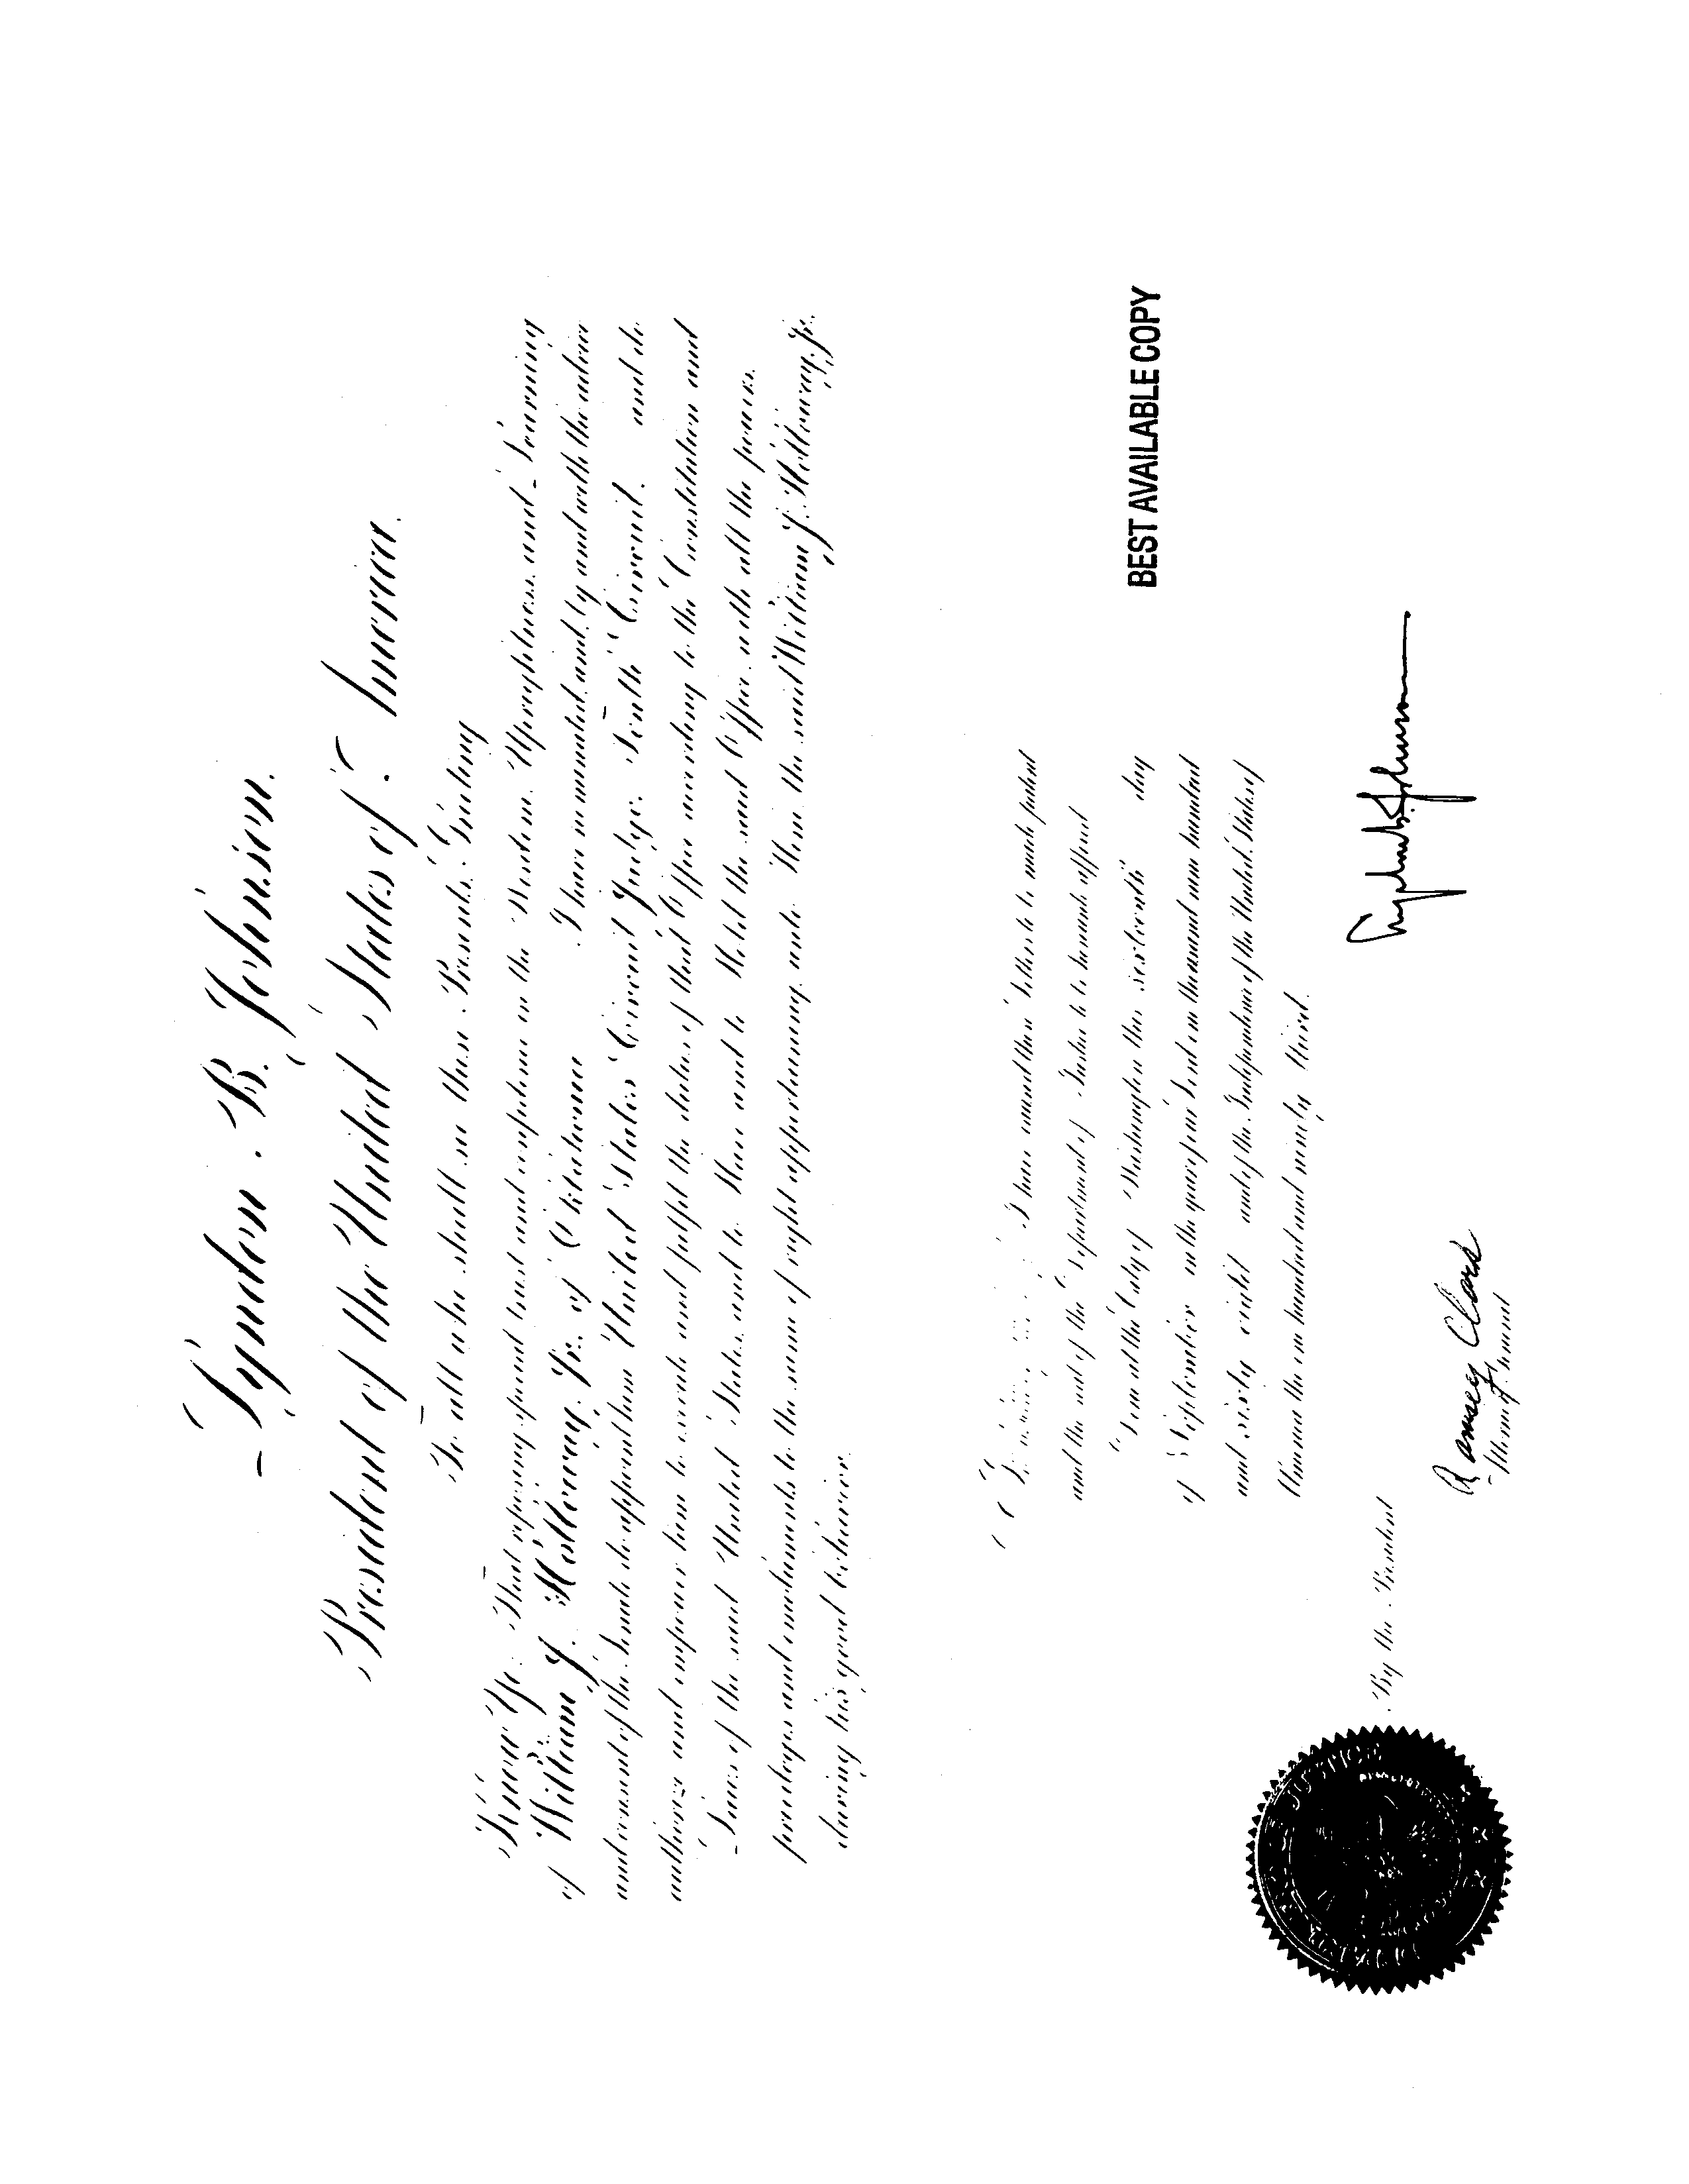 Lyndon B. Johnson,
President of the United States of America,
To all who shall see these Presents, Greeting
Know Ye: That reposing special trust and confidence in the Wisdom, Uprightness, and Learning
of William J. Holloway, Jr., of Oklahoma I have nominated, and, by and with the advice
and consent of the Senate, do appoint him United States Circuit Judge, Tenth Circuit, and do
authorize and empower him to execute and fulfil the duties of that Office according to the Constitution and
Laws of the said United States, and to Have and to Hold the said Office, with all the powers,
privileges and emoluments to the same of right appertaining, unto Him, the said William J. Holloway, Jr.,
during his good behavior.
I have caused these Letters to be made patent
and the seal of the Department of Justice to be hereunto affixed
Done at the City of Washington this sixteenth day
of September in the year of our Lord one thousand nine hundred
and sixty eight and of the Independence of the United States of
America the one hundred and ninety third.
BEST AVAILABLE COPY
Lyndon B. Johnson
By the President
Ramsey Clark
Attorney General
JUSTICE